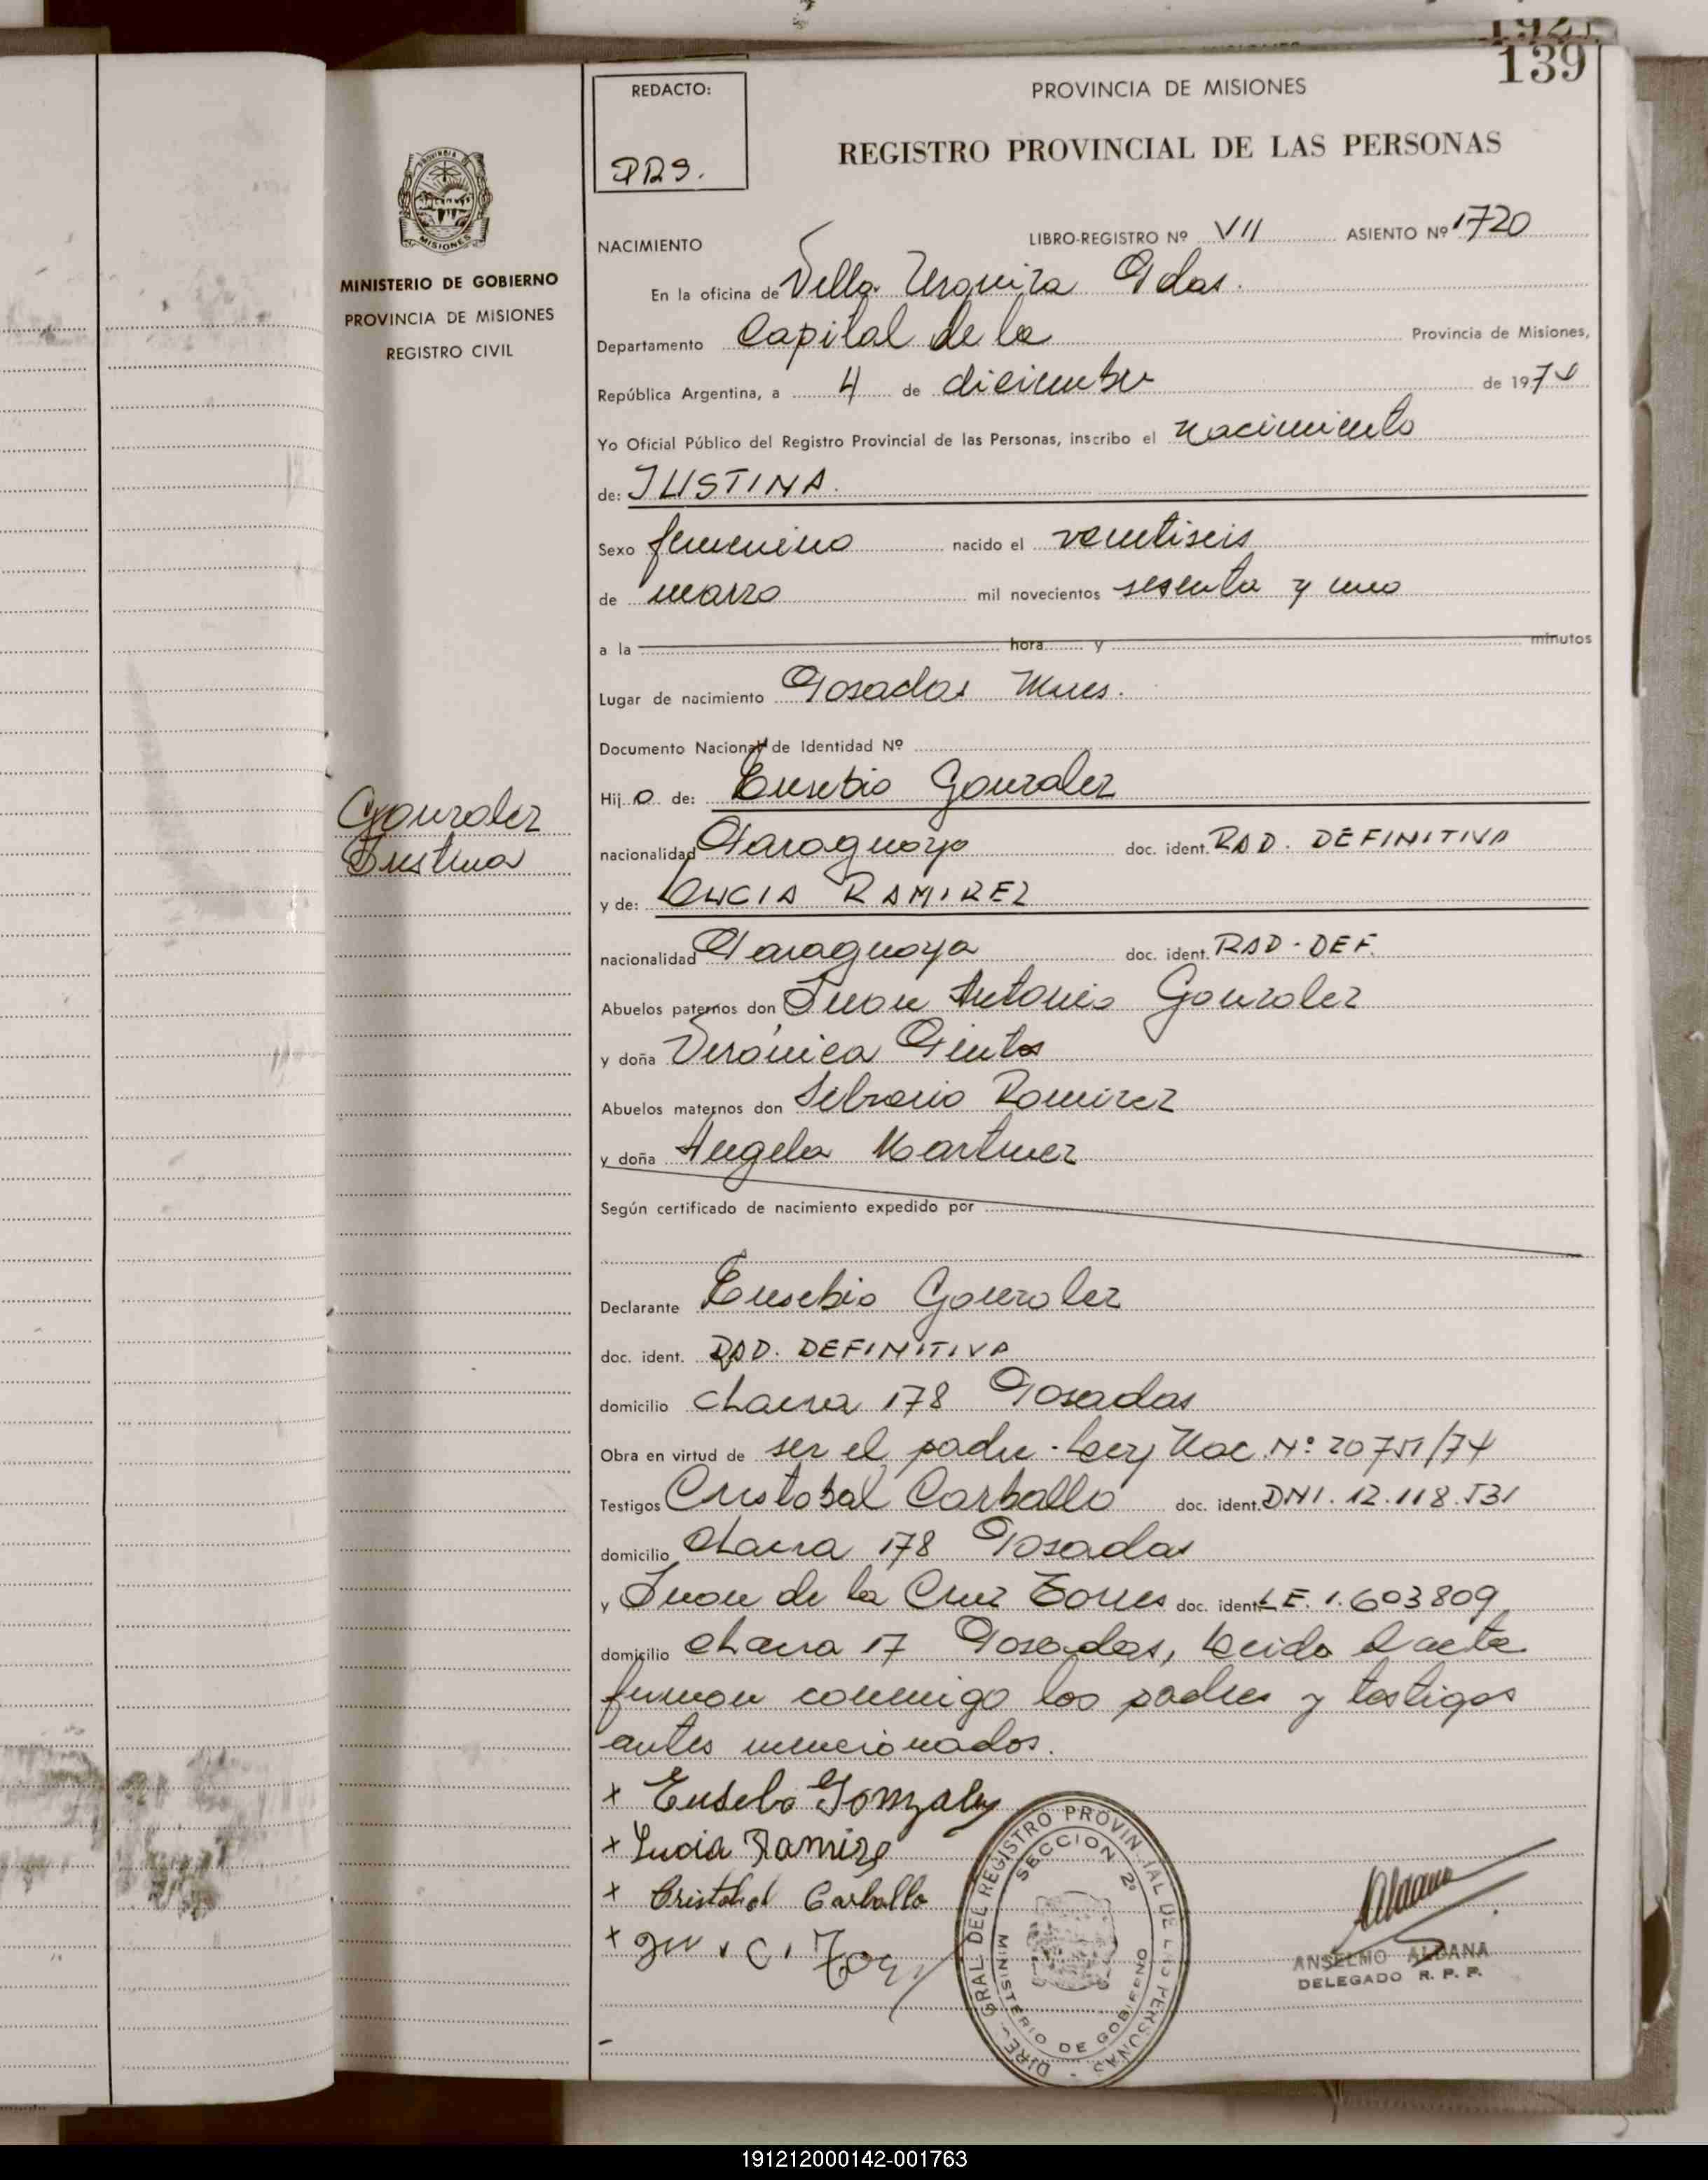 192
139
REDACTO:
PROVINCIA DE MISIONES
REGISTRO PROVINCIAL DE LAS PERSONAS
MINISTERIO DE GOBIERNO
PROVINCIA DE MISIONES
REGISTRO CIVIL
NACIMIENTO LIBRO-REGISTRO Nº VII ASIENTO Nº 1720
En la oficina de Villa Urquiza Pdas.
Departamento Capital de la Provincia de Misiones,
República Argentina, a 4 de diciembre de 1974
Yo Oficial Público del Registro Provincial de las Personas, inscribo el nacimiento
de: JUSTINA.
Sexo femenino nacido el veintiseis
de marzo mil novecientos sesenta y uno
a la hora y minutos
Lugar de nacimiento Posadas Mnes.
Documento Nacional de Identidad Nº
Hij a de: Eusebio Gonzalez
Gonzalez
Justina
nacionalidad Paraguayo doc. ident. RAD. DEFINITIVA
y de: LUCIA RAMIREZ
nacionalidad Paraguaya doc. ident. RAD-DEF.
Abuelos paternos don Juan Antonio Gonzalez
y doña Verónica Pintos
Abuelos maternos don Silverio Ramirez
y doña Angela Martinez
Según certificado de nacimiento expedido por
Declarante Eusebio Gonzalez
doc. ident. RAD. DEFINITIVA
domicilio chacra 178 Posadas
Obra en virtud de ser el padre. Ley Nac. Nº 20751/74
Testigos Cristobal Carballo doc. ident. DNI. 12.118.531
domicilio chacra 178 Posadas
y Juan de la Cruz Torres doc. ident. LE. 1.603809
domicilio chacra 17 Posadas, Leida el acta
firman conmigo los padres y testigos
antes mencionados.
x Eusebo Gonzalez
x Lucia Ramire
x Cristobal Carballo
x
DIRE. GRAL. DEL REGISTRO PROVINCIAL DE LAS PERSONAS
SECCION 2ª
MINISTERIO DE GOBIERNO
Aldana
ANSELMO ALDANA
DELEGADO R. P. P.
191212000142-001763